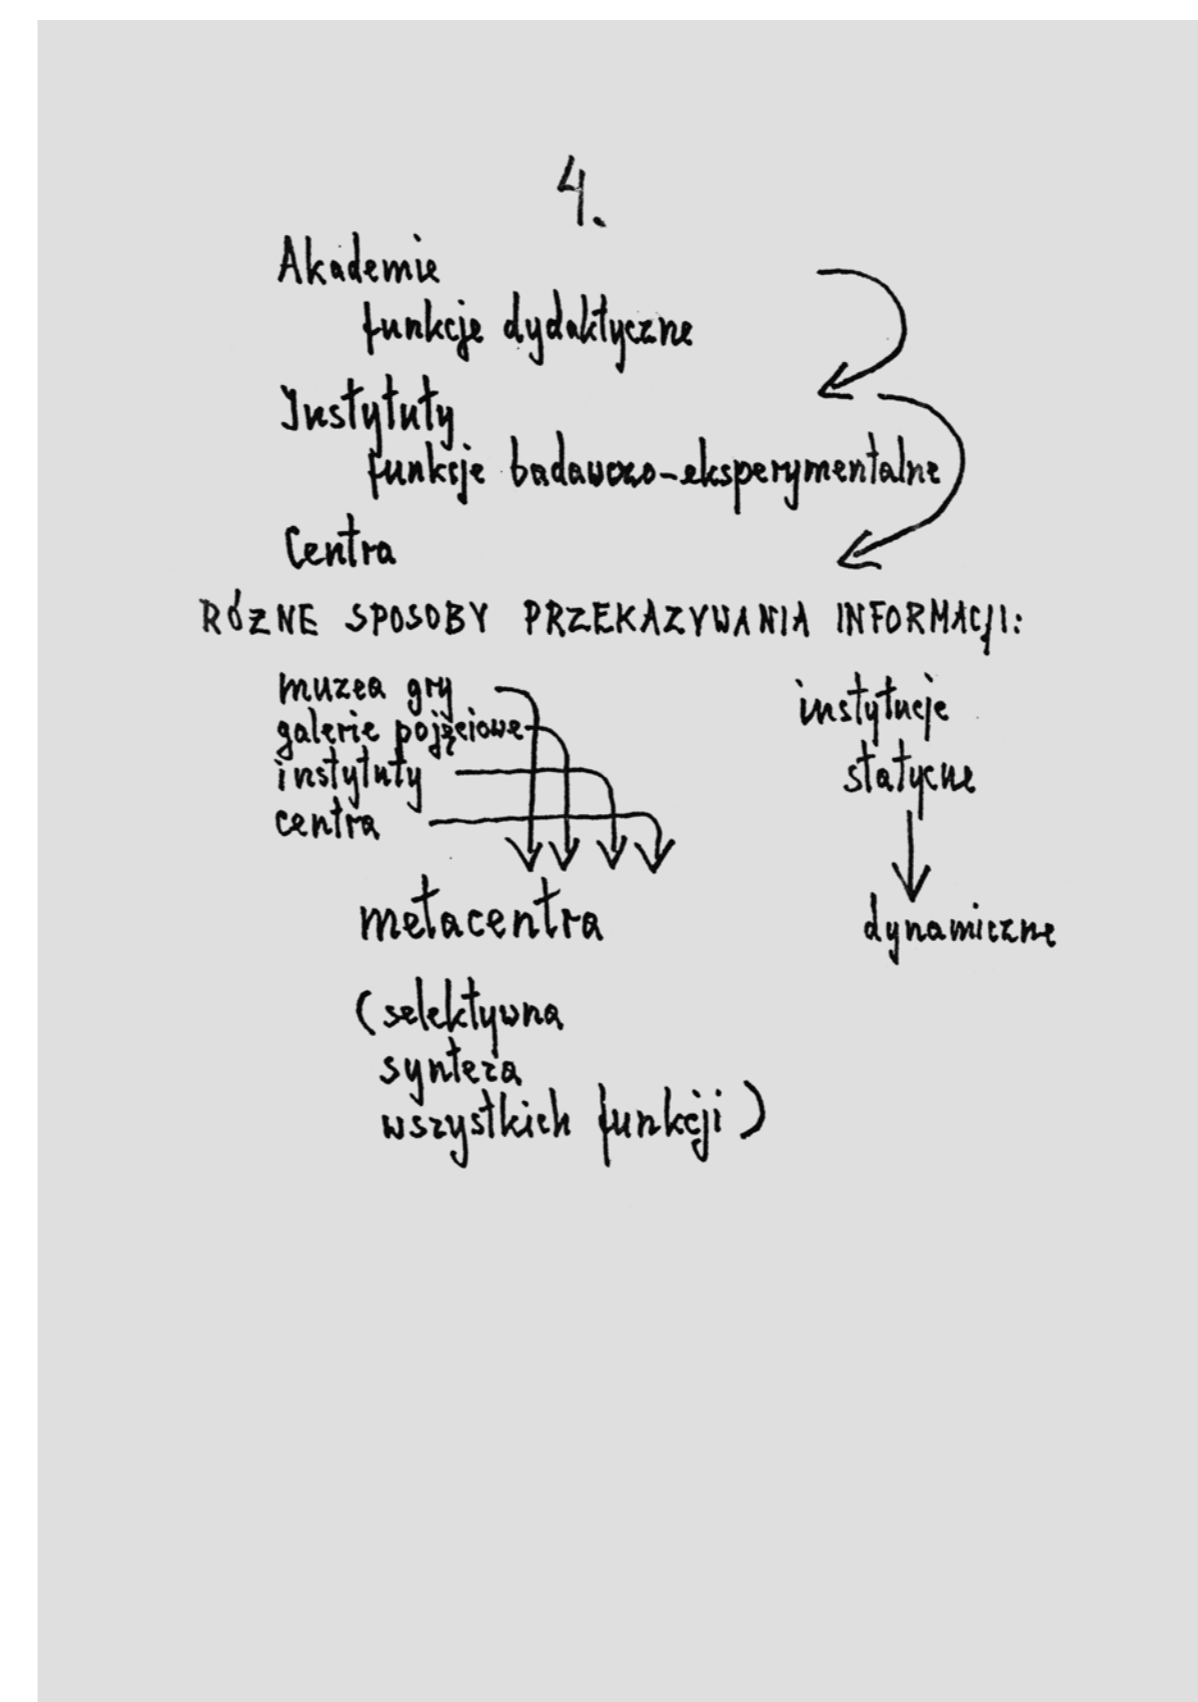 4.
Akademie
funkcje dydaktyczne
Instytuty
funkcje badawczo-eksperymentalne
Centra
RÓŻNE SPOSOBY PRZEKAZYWANIA INFORMACJI:
muzea gry
galerie pojęciowe
instytuty
centra
metacentra
(selektywna
synteza
wszystkich funkcji)
instytucje
statyczne
dynamiczne